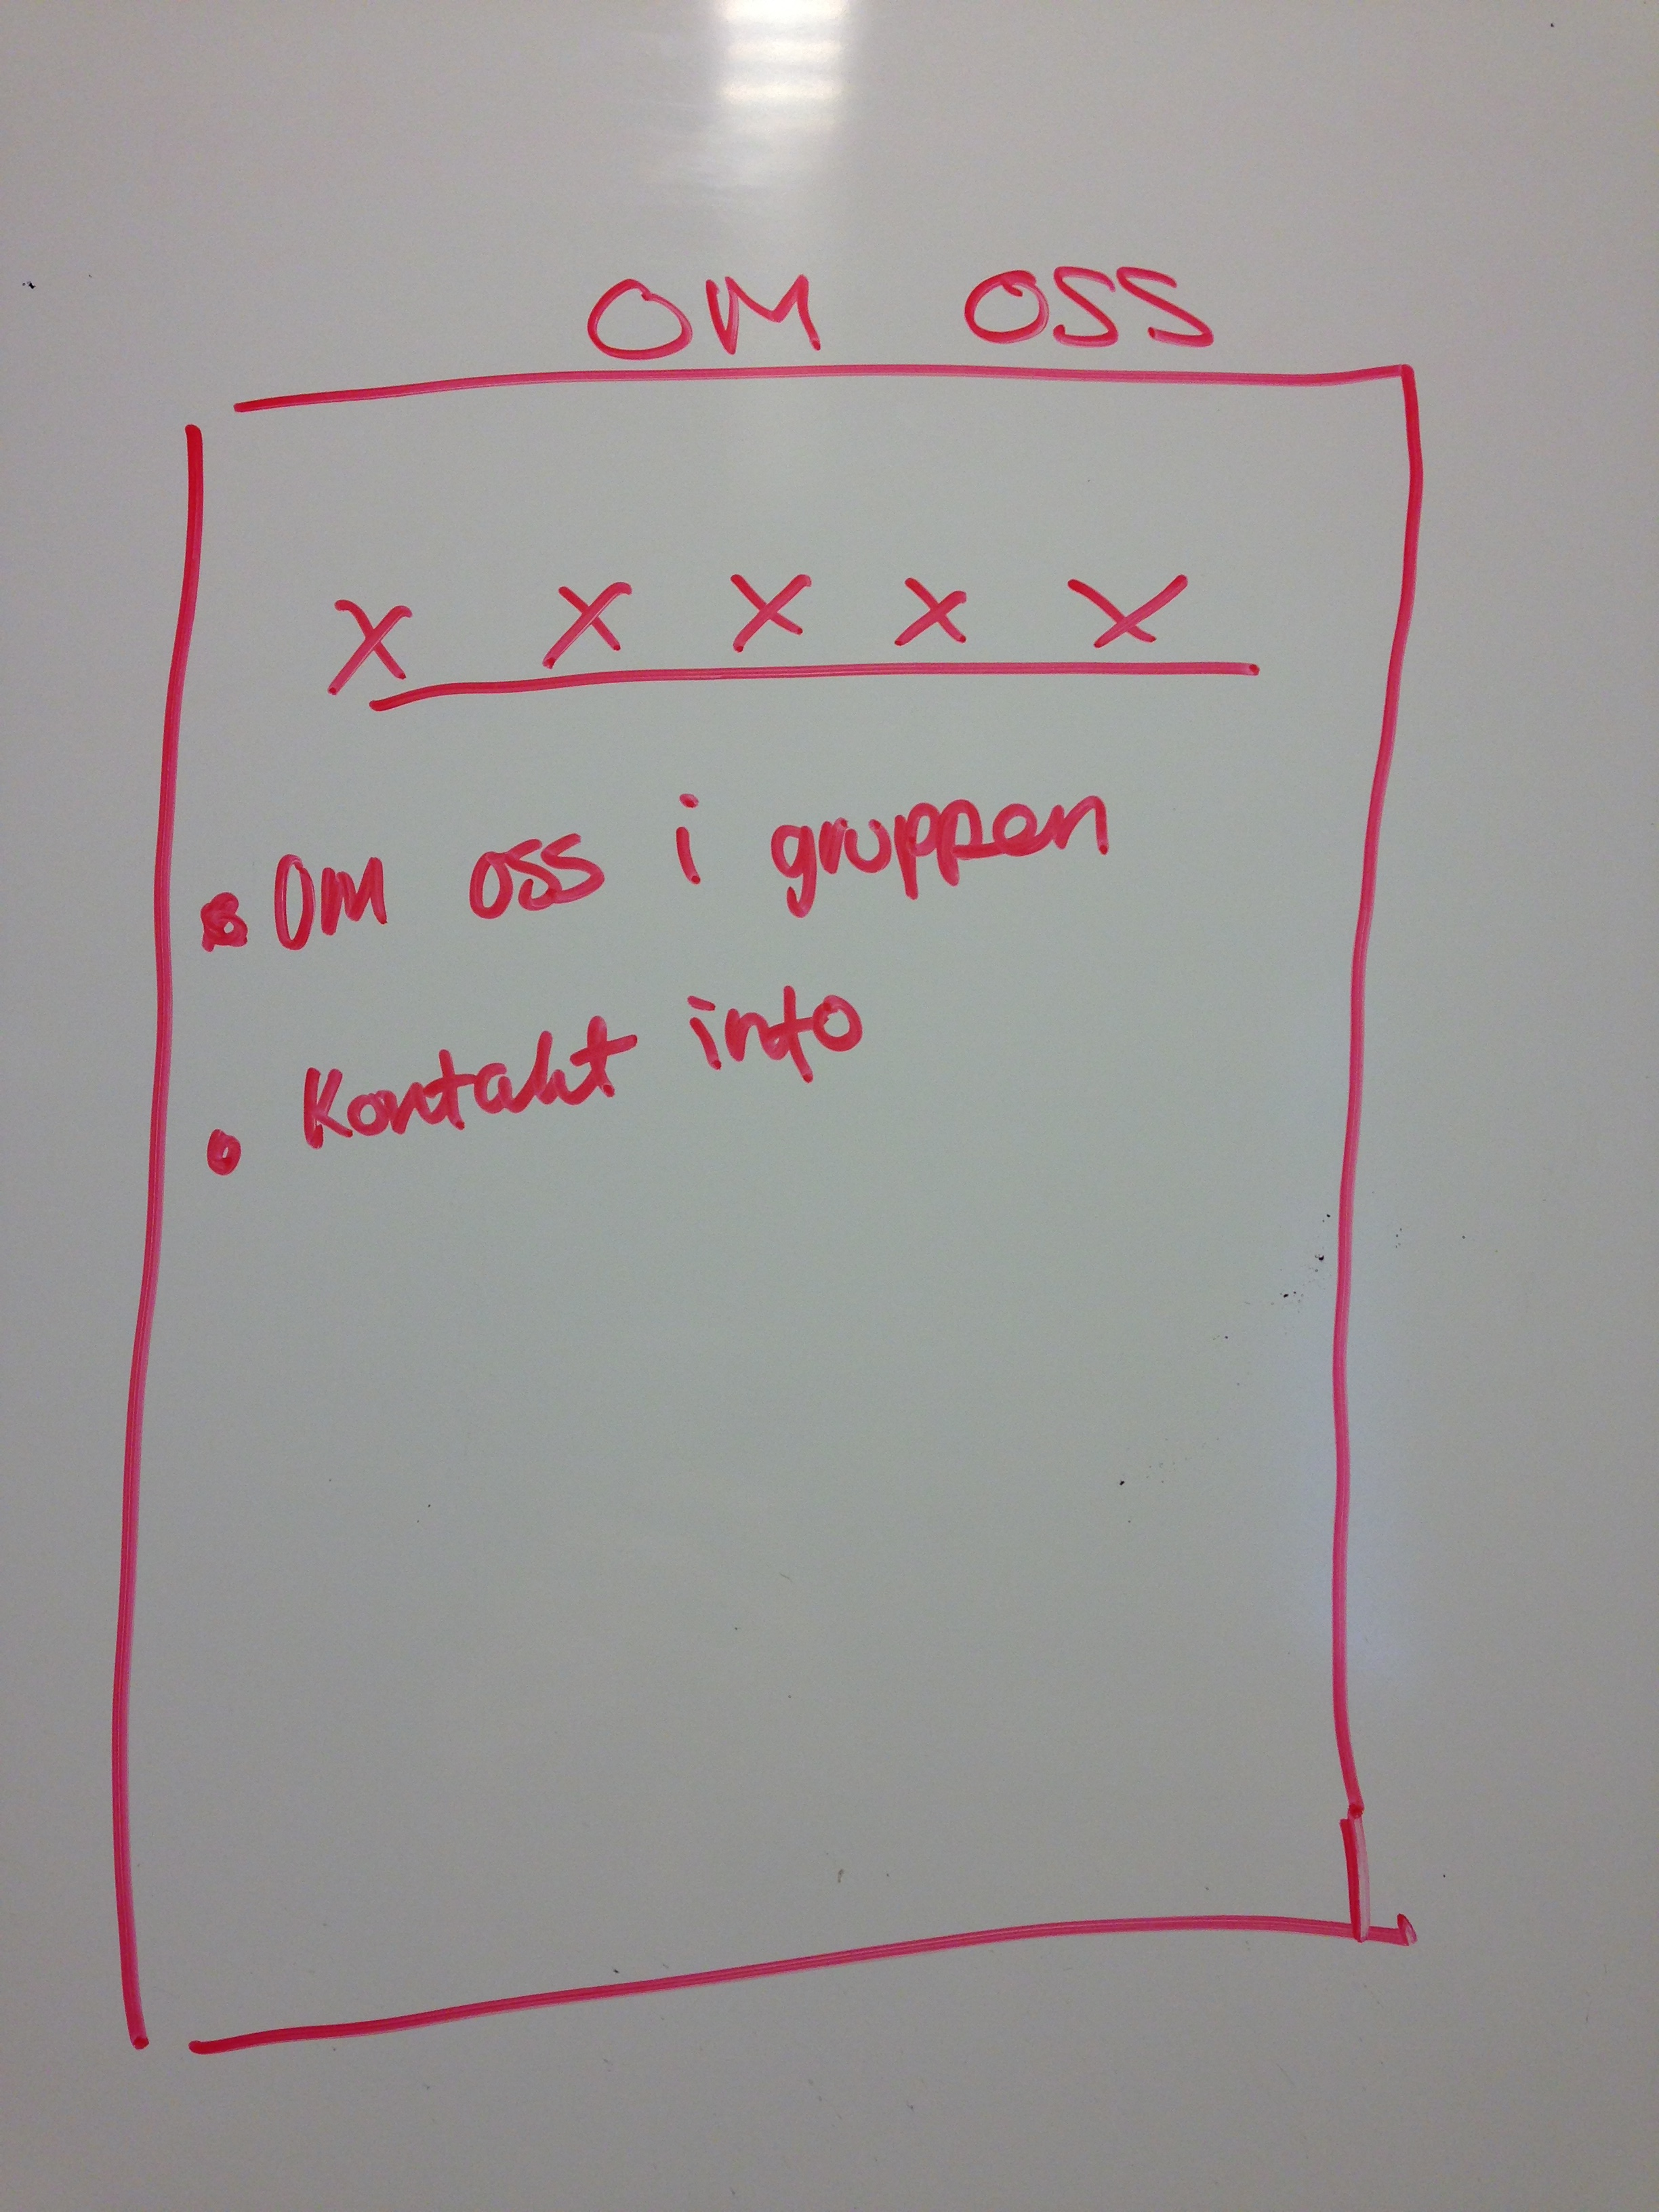 OM OSS
X X X X X
• Om oss i gruppen
• Kontakt info